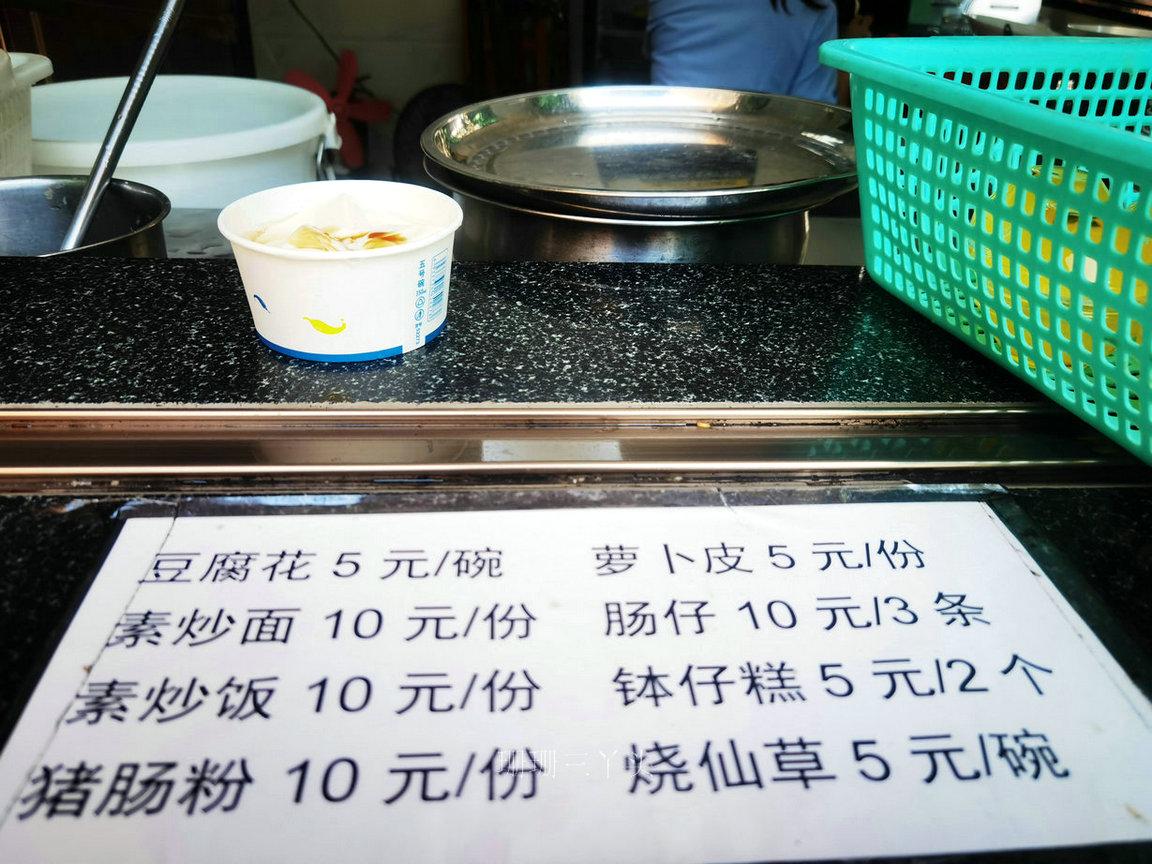 豆腐花 5 元/碗 萝卜皮 5 元/份
素炒面 10 元/份 肠仔 10 元/3 条
素炒饭 10 元/份 钵仔糕 5 元/2 个
猪肠粉 10 元/份 烧仙草 5 元/碗
珊珊三丫头